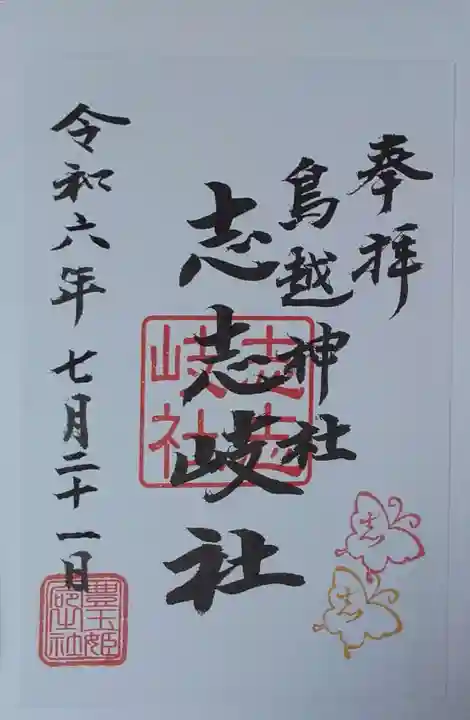 奉拝
鳥越神社
志志岐社
志志岐社
令和六年七月二十一日
豊玉姫
志
志